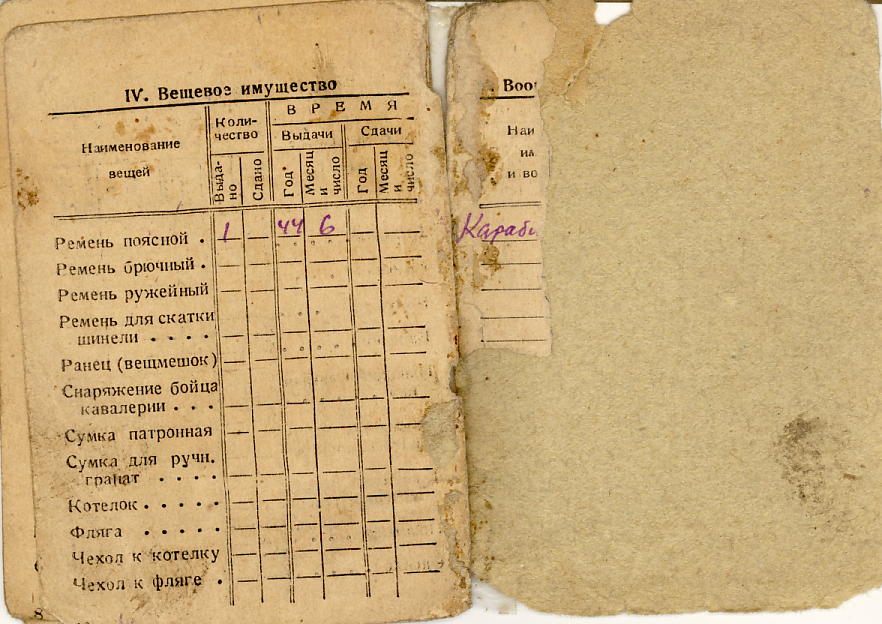 IV. Вещевое имущество
Наименование
вещей
Коли-
чество
ВРЕМЯ
Выдачи
Сдачи
Выда-
но
Сдано
Год
Месяц
и
число
Год
Месяц
и
число
Ремень поясной . 1 44 6
Ремень брючный .
Ремень ружейный
Ремень для скатки
шинели . . . .
Ранец (вещмешок)
Снаряжение бойца
кавалерии . . .
Сумка патронная
Сумка для ручн.
гранат . . . .
Котелок . . . . .
Фляга . . . . .
Чехол к котелку
Чехол к фляге .
8
. Воо
Наи
и во
Караб